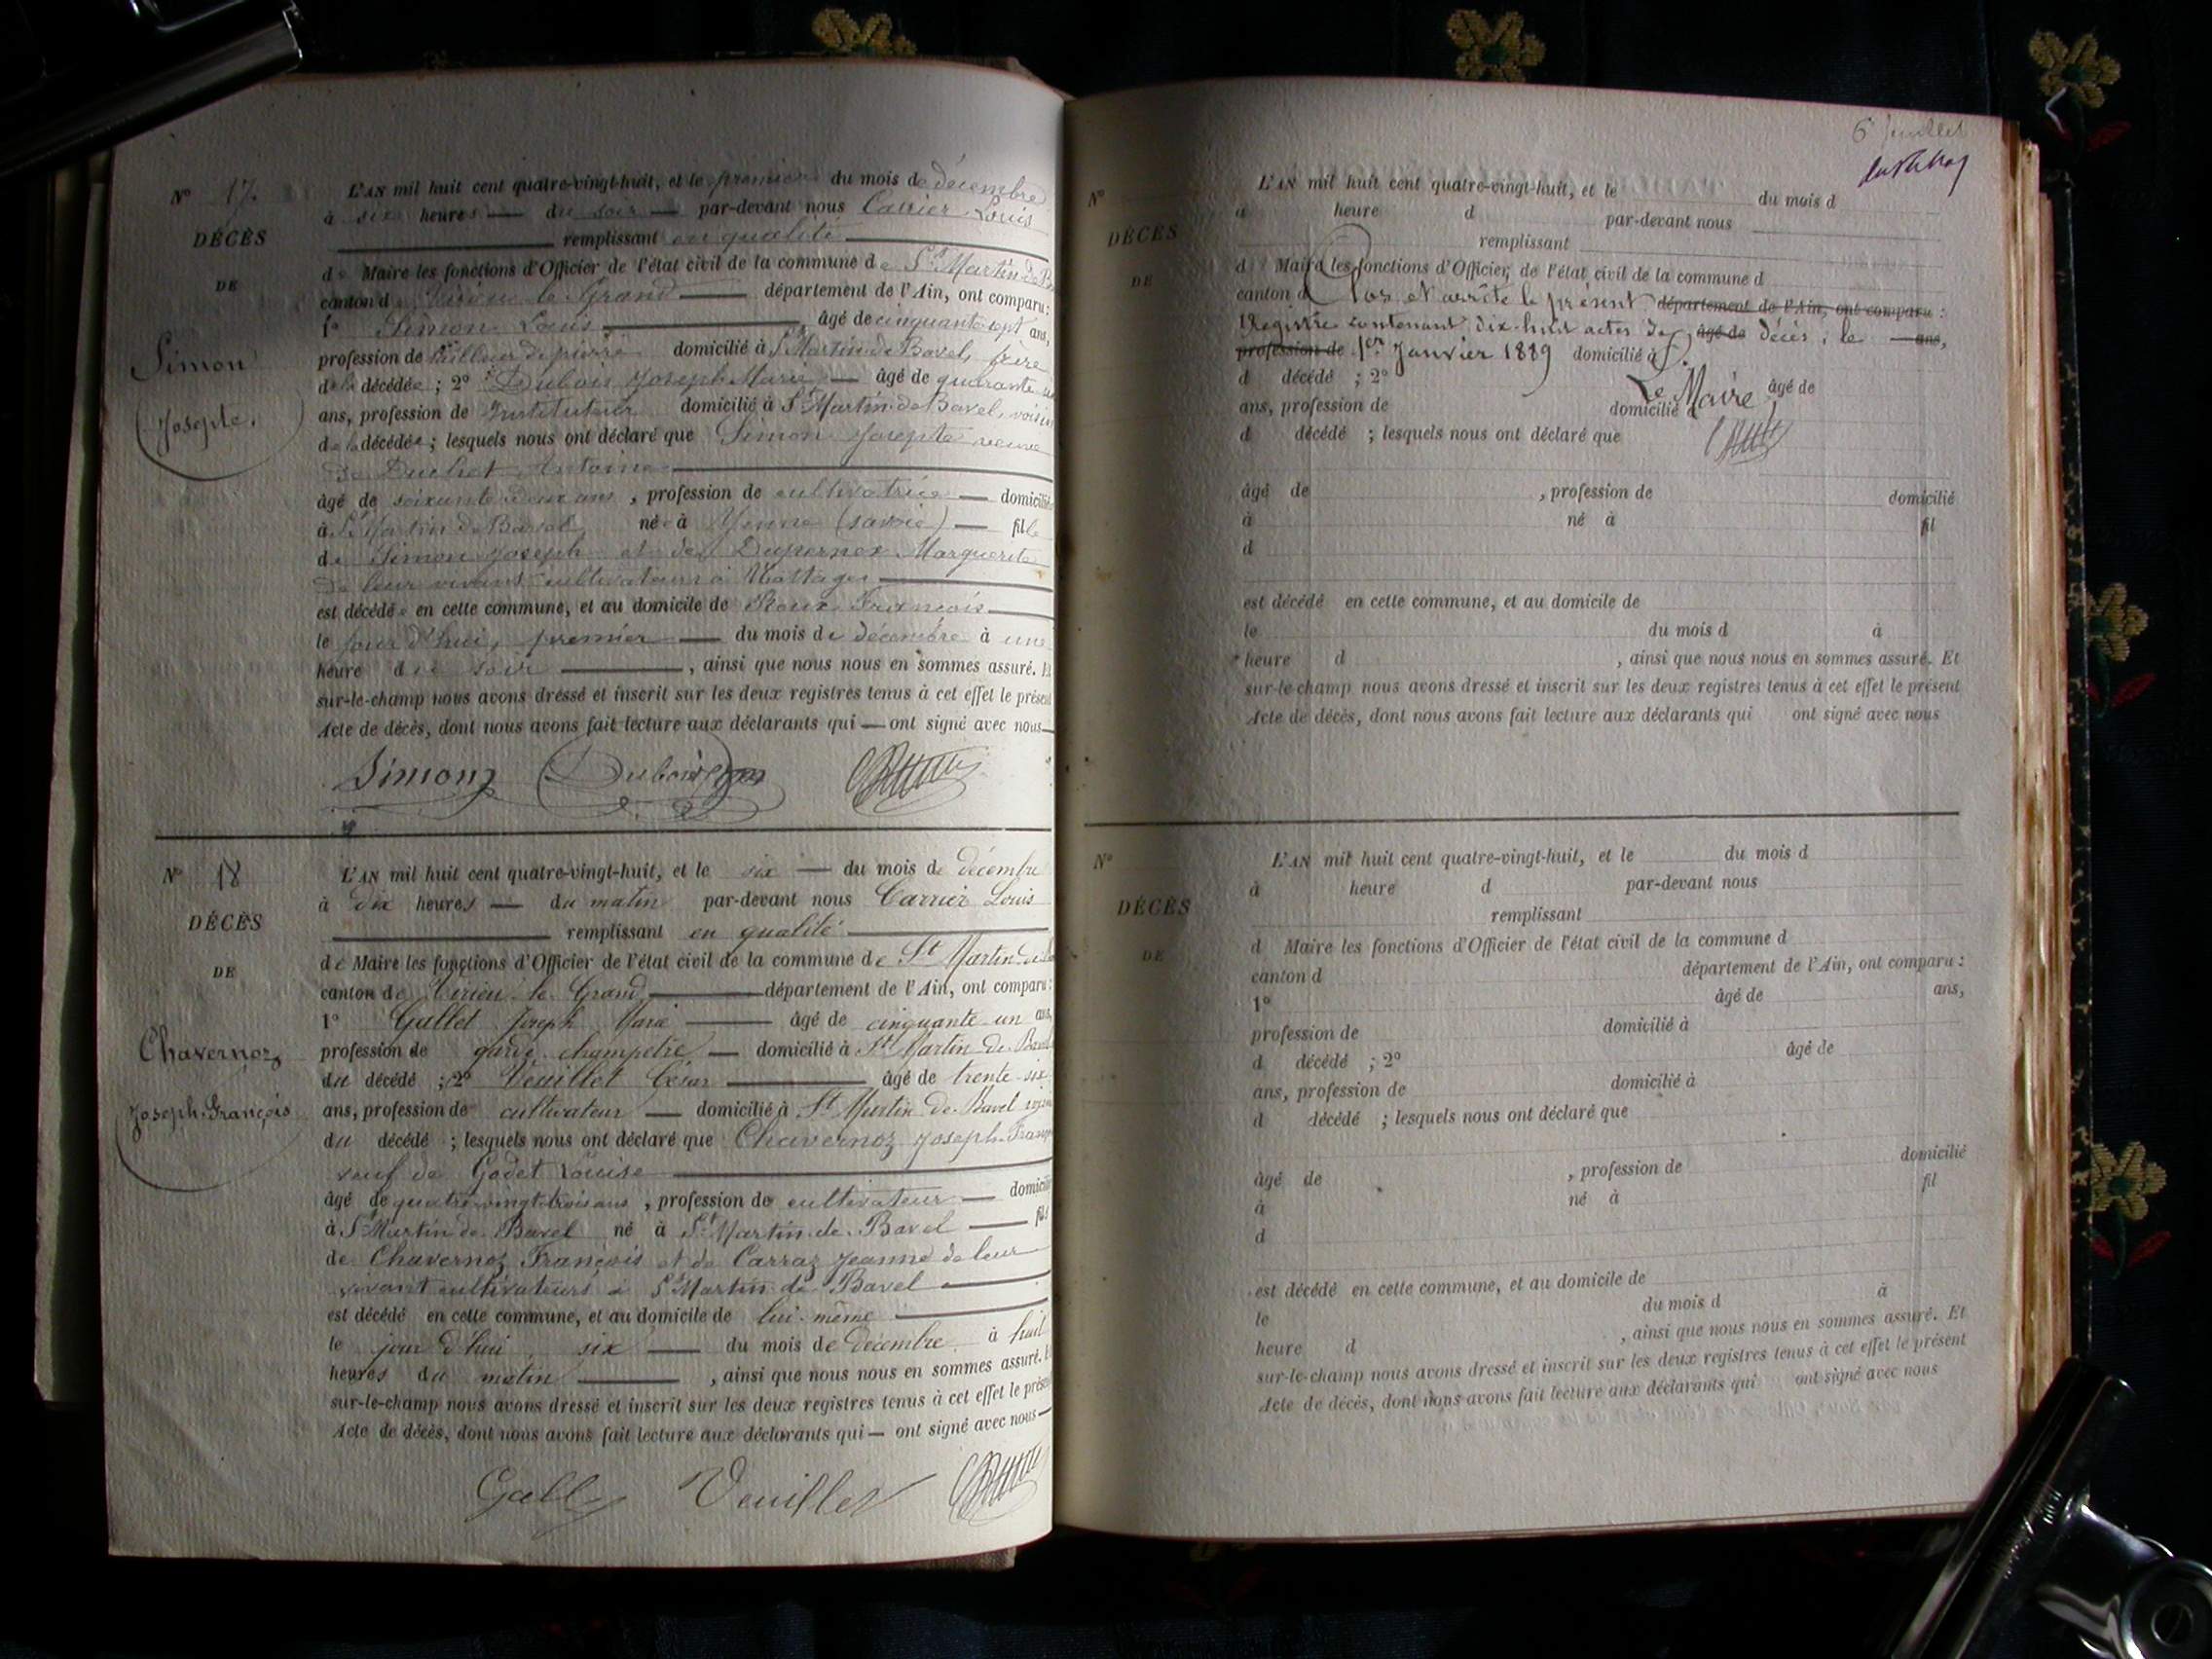 N° 17.
DÉCÈS
DE
Simon
Josepte.
L'AN mil huit cent quatre-vingt-huit, et le premier du mois de décembre
à six heures — du soir — par-devant nous Carrier Louis
remplissant en qualité
de Maire les fonctions d'Officier de l'état civil de la commune de St Martin de B
canton de le Grand — département de l'Ain, ont comparu :
1° Simon Louis — âgé de cinquante sept ans,
profession de tailleur de pierre domicilié à St Martin de Bavel, frère
de la décédée ; 2° Dubois Joseph Marie — âgé de quarante
ans, profession de Instituteur domicilié à St Martin de Bavel, voisin
de la décédée ; lesquels nous ont déclaré que Simon Josepte veuve
de Duchet Antoine
âgé de soixante deux ans, profession de cultivatrice — domicilié
à St Martin de Bavel née à Yenne (savoie) — fille
de Simon Joseph et de Dupernex Marguerite
de leur vivant cultivateurs à
est décédée en cette commune, et au domicile de Roux François
le jour d'hui, premier — du mois de décembre à une
heure du soir —, ainsi que nous nous en sommes assuré. Et
sur-le-champ nous avons dressé et inscrit sur les deux registres tenus à cet effet le présent
Acte de décès, dont nous avons fait lecture aux déclarants qui — ont signé avec nous
Simon Dubois
N° 18
DÉCÈS
DE
Chavernoz
Joseph-François
L'AN mil huit cent quatre-vingt-huit, et le six — du mois de décembre
à dix heures — du matin par-devant nous Carrier Louis
remplissant en qualité
de Maire les fonctions d'Officier de l'état civil de la commune de St Martin de
canton de Virieu le Grand — département de l'Ain, ont comparu :
1° Gallet Joseph Marie — âgé de cinquante un ans,
profession de garde champetre — domicilié à St Martin de Bavel
du décédé ; 2° Veuillet César — âgé de trente six
ans, profession de cultivateur — domicilié à St Martin de Bavel voisin
du décédé ; lesquels nous ont déclaré que Chavernoz Joseph-Franç
veuf de Godet Louise
âgé de quatre vingt trois ans, profession de cultivateur — domicilié
à St Martin de Bavel né à St Martin de Bavel — fils
de Chavernoz François et de Carraz Jeanne de leur
vivant cultivateurs à St Martin de Bavel
est décédé en cette commune, et au domicile de lui-même
le jour d'hui, six — du mois de décembre à huit
heures du matin —, ainsi que nous nous en sommes assuré. E
sur-le-champ nous avons dressé et inscrit sur les deux registres tenus à cet effet le présent
Acte de décès, dont nous avons fait lecture aux déclarants qui — ont signé avec nous
Gallet Veuillet
6 Juillet
N°
DÉCÈS
DE
L'AN mil huit cent quatre-vingt-huit, et le du mois d
à heure d par-devant nous
remplissant
d Maire les fonctions d'Officier de l'état civil de la commune d
canton d Clos et arrêté le présent département de l'Ain, ont comparu :
Registre contenant dix-huit actes de âgé de décès, le ans,
profession de 1er Janvier 1889 domicilié à
d décédé ; 2° Le Maire, âgé de
ans, profession de domicilié
d décédé ; lesquels nous ont déclaré que
âgé de , profession de domicilié
à né à fil
d
est décédé en cette commune, et au domicile de
le du mois d à
heure d , ainsi que nous nous en sommes assuré. Et
sur-le-champ nous avons dressé et inscrit sur les deux registres tenus à cet effet le présent
Acte de décès, dont nous avons fait lecture aux déclarants qui ont signé avec nous
N°
DÉCÈS
DE
L'AN mil huit cent quatre-vingt-huit, et le du mois d
à heure d par-devant nous
remplissant
d Maire les fonctions d'Officier de l'état civil de la commune d
canton d département de l'Ain, ont comparu :
1° âgé de ans,
profession de domicilié à
d décédé ; 2° âgé de
ans, profession de domicilié à
d décédé ; lesquels nous ont déclaré que
âgé de , profession de domicilié
à né à fil
d
est décédé en cette commune, et au domicile de
le du mois d à
heure d , ainsi que nous nous en sommes assuré. Et
sur-le-champ nous avons dressé et inscrit sur les deux registres tenus à cet effet le présent
Acte de décès, dont nous avons fait lecture aux déclarants qui ont signé avec nous